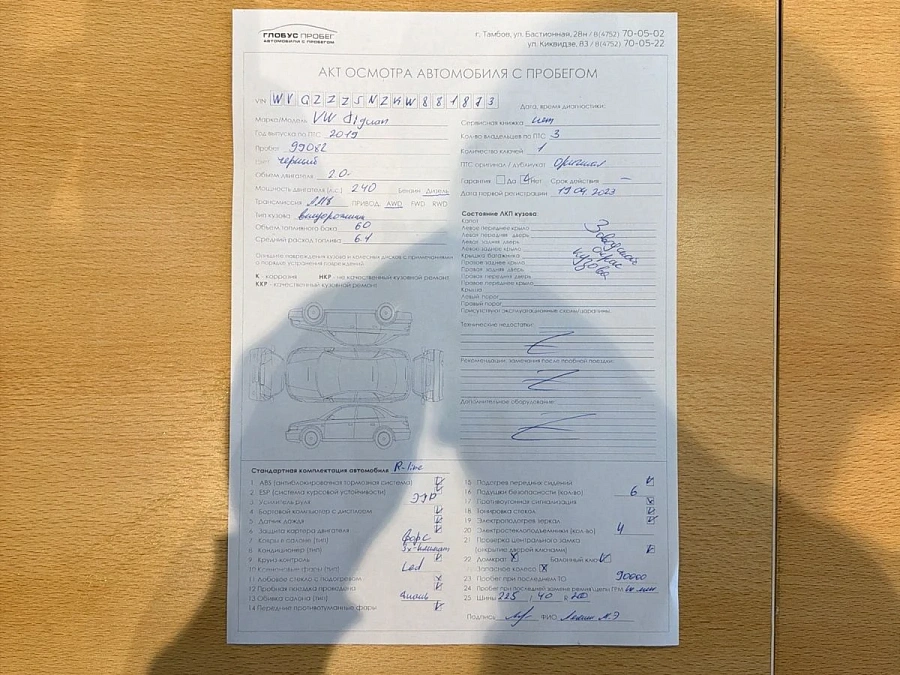 ГЛОБУС ПРОБЕГ
АВТОМОБИЛИ С ПРОБЕГОМ
г. Тамбов, ул. Бастионная, 28н / 8(4752) 70-05-02
ул. Киквидзе, 83 / 8(4752) 70-05-22
АКТ ОСМОТРА АВТОМОБИЛЯ С ПРОБЕГОМ
VIN WVGZZZ5NZKW881873
Марка/Модель VW Tiguan
Год выпуска по ПТС 2019
Пробег 99082
Цвет черный
Объем двигателя 2.0
Мощность двигателя (л.с.) 240 Бензин Дизель
Трансмиссия ПРИВОД: AWD FWD RWD
Тип кузова внедорожник
Объем топливного бака 60
Средний расход топлива 6.1
Опишите повреждения кузова и колесных дисков с примечаниями
о порядке устранения повреждений
К - коррозия НКР - не качественный кузовной ремонт
ККР - качественный кузовной ремонт
Дата, время диагностики:
Сервисная книжка нет
Кол-во владельцев по ПТС 3
Количество ключей 1
ПТС оригинал / дубликат Оригинал
Гарантия Да Нет Срок действия —
Дата первой регистрации 19.04.2023
Состояние ЛКП кузова:
Капот
Левое переднее крыло
Левая передняя дверь
Левая задняя дверь
Левое заднее крыло
Крышка багажника
Правое заднее крыло
Правая задняя дверь
Правая передняя дверь
Правое переднее крыло
Крыша
Левый порог
Правый порог
Заводской
окрас
кузова
Присутствуют эксплуатационные сколы/царапины.
Технические недостатки:
Рекомендации, замечания после пробной поездки:
Дополнительное оборудование:
Стандартная комплектация автомобиля R-line
1 ABS (антиблокировочная тормозная система)
2 ESP (система курсовой устойчивости)
3 Усилитель руля ЭУР
4 Бортовой компьютер с дисплеем
5 Датчик дождя
6 Защита картера двигателя
7 Ковры в салоне (тип) форс
8 Кондиционер (тип) 3х-климат
9 Круиз-контроль
10 Ксеноновые фары (тип) Led
11 Лобовое стекло с подогревом
12 Пробная поездка проведена
13 Обивка салона (тип)
14 Передние противотуманные фары
15 Подогрев передних сидений
16 Подушки безопасности (кол-во) 6
17 Противоугонная сигнализация
18 Тонировка стекол
19 Электроподогрев зеркал
20 Электростеклоподъемники (кол-во) 4
21 Проверка центрального замка
(открытие дверей ключами)
22 Домкрат Балонный ключ
Запасное колесо
23 Пробег при последнем ТО 90000
24 Пробег при последней замене ремня/цепи ГРМ
25 Шины 225 / 40 R
Подпись ФИО